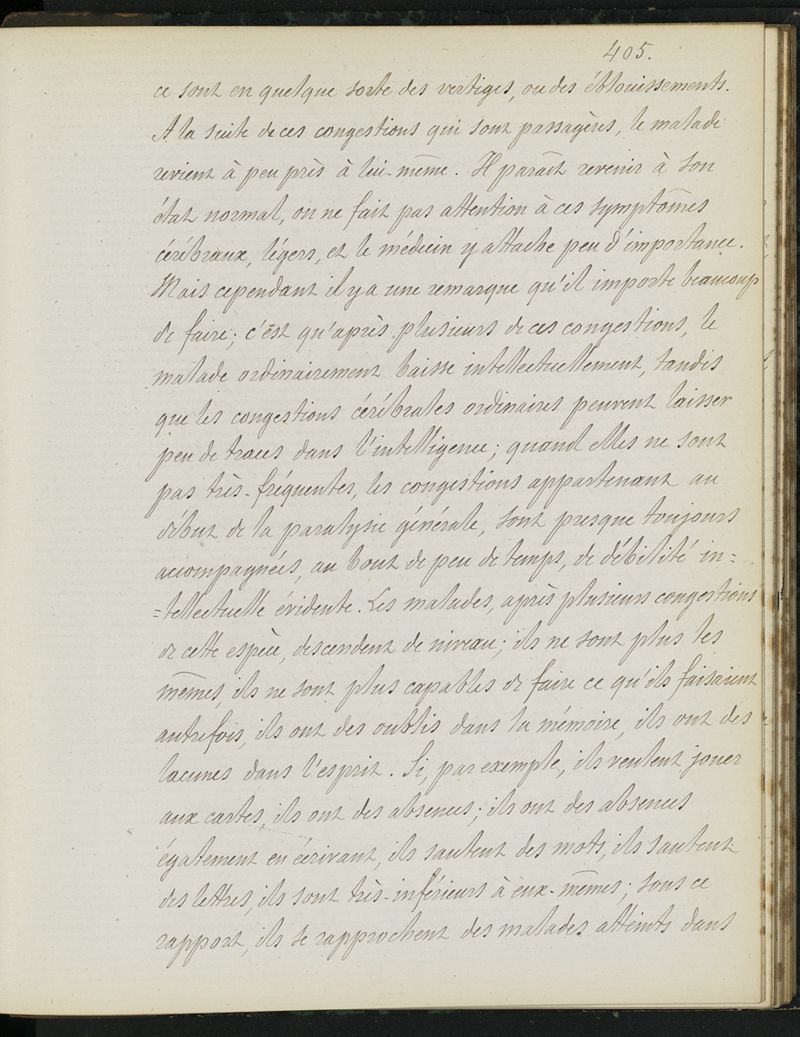 405.
ce sont en quelque sorte des vertiges, ou des éblouissements.
A la suite de ces congestions qui sont passagères, le malade
revient à peu près à lui-même. Il paraît revenir à son
état normal, on ne fait pas attention à ces symptômes
cérébraux, légers, et le médecin y attache peu d'importance.
Mais cependant il y a une remarque qu'il importe beaucoup
de faire; c'est qu'après plusieurs de ces congestions, le
malade ordinairement baisse intellectuellement, tandis
que les congestions cérébrales ordinaires peuvent laisser
peu de traces dans l'intelligence; quand elles ne sont
pas très-fréquentes, les congestions appartenant au
début de la paralysie générale, sont presque toujours
accompagnées, au bout de peu de temps, de débilité in=
=tellectuelle évidente. Les malades, après plusieurs congestions
de cette espèce, descendent de niveau; ils ne sont plus les
mêmes, ils ne sont plus capables de faire ce qu'ils faisaient
autrefois, ils ont des oublis dans la mémoire, ils ont des
lacunes dans l'esprit. Si, par exemple, ils veulent jouer
aux cartes, ils ont des absences; ils ont des absences
également en écrivant, ils sautent des mots, ils sautent
des lettres, ils sont très-inférieurs à eux-mêmes; sous ce
rapport, ils se rapprochent des malades atteints dans